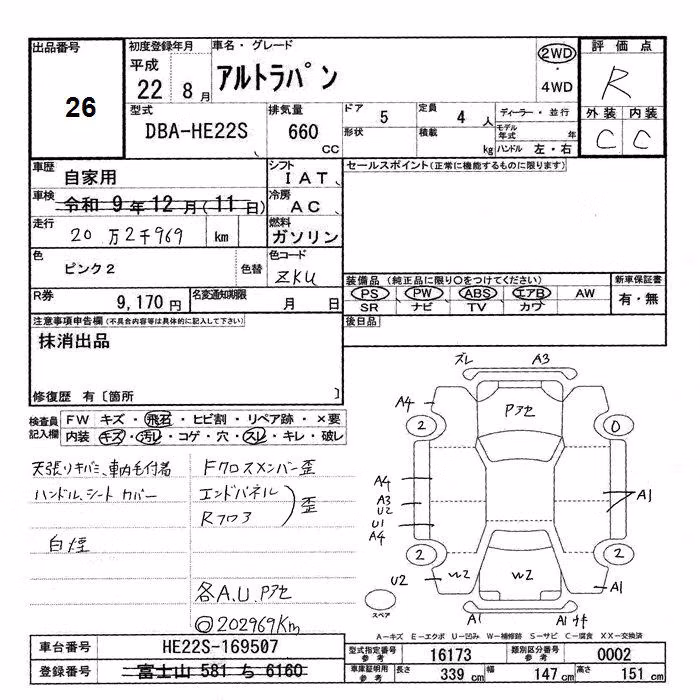 出品番号 初度登録年月 車名・グレード 評価点
26 平成 22 8月 アルトラパン 2WD・4WD R
型式 排気量 ドア 5 定員 4人 ディーラー・並行 外装 内装
DBA-HE22S 660CC 形状 積載 kg モデル年式 年 ハンドル 左・右 C C
車歴 自家用 シフト IAT セールスポイント(正常に機能するものに限ります)
車検 令和 9年 12月(11日) 冷房 AC
走行 20万2千969 km 燃料 ガソリン
色 ピンク2 色替 色コード ZKU
装備品(純正品に限り○をつけてください) 新車保証書
PS PW ABS エアB AW 有・無
SR ナビ TV カワ
R券 9,170円 名変通知期限 月 日
後日品
注意事項申告欄(不具合内容等は具体的に記入して下さい)
抹消出品
修復歴 有〔箇所 〕
検査員記入欄 FW キズ・飛石・ヒビ割・リペア跡・×要
内装 キズ・汚レ・コゲ・穴・スレ・キレ・破レ
天張りキバミ、車内毛付着
ハンドル、シートカバー
白煙
Fクロスメンバー歪
エンドパネル
Rフロア
歪
各A.U.Pアセ
◎202969Km
ズレ A3
A4 Pアセ
2 0
A4
A3
U2
U1
A4
A1
2 2
U2 W2 W2 A1
スペア A1 A1 サキ
A-キズ E-エクボ U-凹み W-補修跡 S-サビ C-腐食 XX-交換済
車台番号 HE22S-169507
登録番号 富士山 581 ち 6160
型式指定番号 参考 16173 類別区分番号 参考 0002
車庫証明用 参考 長さ 339cm 幅 147cm 高さ 151cm